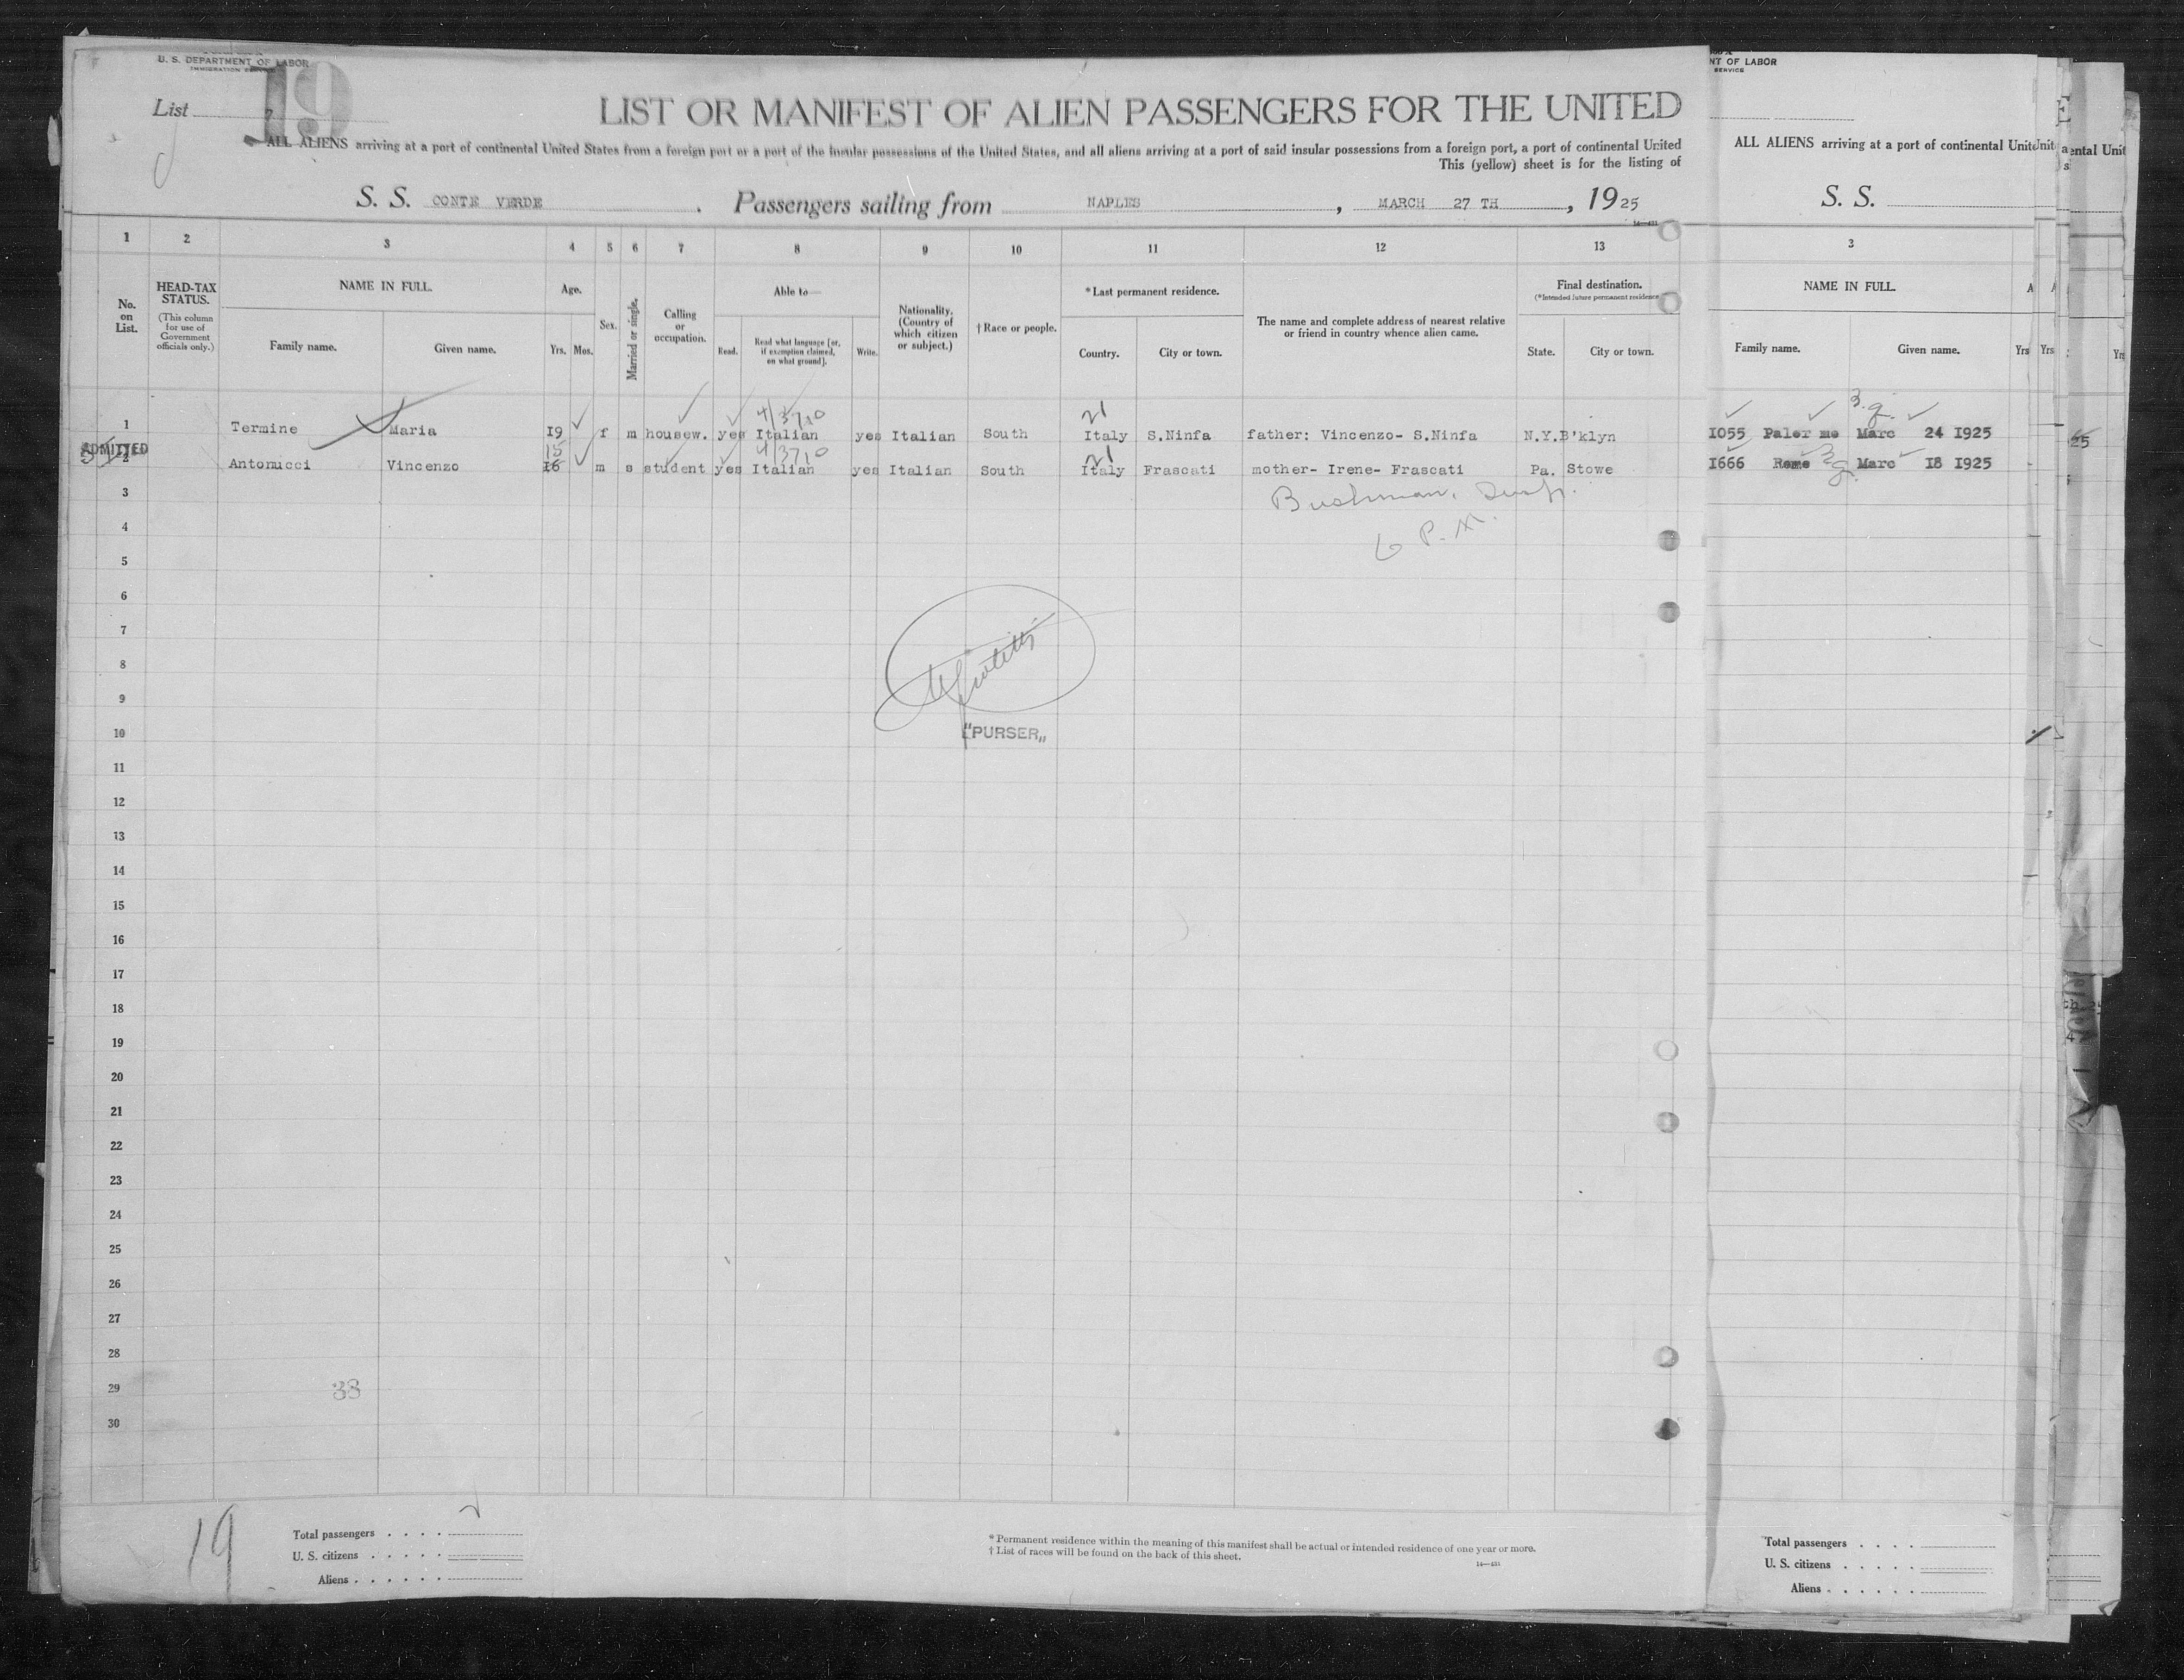 U. S. DEPARTMENT OF LABOR
IMMIGRATION SERVICE
List 19
LIST OR MANIFEST OF ALIEN PASSENGERS FOR THE UNITED
ALL ALIENS arriving at a port of continental United States from a foreign port or a port of the insular possessions of the United States, and all aliens arriving at a port of said insular possessions from a foreign port, a port of continental United
This (yellow) sheet is for the listing of
S. S. CONTE VERDE Passengers sailing from NAPLES, MARCH 27 TH, 1925
1 2 3 4 5 6 7 8 9 10 11 12 13
No. on List.
HEAD-TAX STATUS.
(This column for use of Government officials only.)
NAME IN FULL.
Family name. Given name.
Age.
Yrs. Mos.
Sex.
Married or single.
Calling or occupation.
Able to—
Read. Read what language [or, if exemption claimed, on what ground]. Write.
Nationality. (Country of which citizen or subject.)
† Race or people.
* Last permanent residence.
Country. City or town.
The name and complete address of nearest relative or friend in country whence alien came.
Final destination.
(*Intended future permanent residence
State. City or town.
4/3710 21
1 Termine Maria 19 f m housew. yes Italian yes Italian South Italy S.Ninfa father: Vincenzo- S.Ninfa N.Y. B'klyn
ADMITTED
15 4/3710 21
2 Antonucci Vincenzo 16 m s student yes Italian yes Italian South Italy Frascati mother- Irene- Frascati Pa. Stowe
3
Bushman, Insp.
4
6 P. M.
5
6
7
8
9
10
"PURSER"
11
12
13
14
15
16
17
18
19
20
21
22
23
24
25
26
27
28
29
38
30
19
Total passengers
U. S. citizens
Aliens
* Permanent residence within the meaning of this manifest shall be actual or intended residence of one year or more.
† List of races will be found on the back of this sheet.
14—431
NT OF LABOR
SERVICE
ALL ALIENS arriving at a port of continental Unite
S. S.
3
NAME IN FULL.
Family name. Given name. Yrs
1055 Palermo Marc 24 1925
1666 Rome Marc 18 1925
Total passengers
U. S. citizens
Aliens
Unit
Yrs
E
ental Unit
25